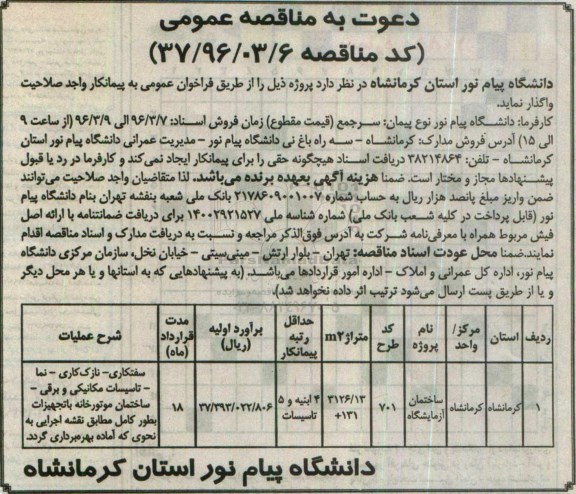 دعوت به مناقصه عمومی
(کد مناقصه ۳۷/۹۶/۰۳/۶)
دانشگاه پیام نور استان کرمانشاه در نظر دارد پروژه ذیل را از طریق فراخوان عمومی به پیمانکار واجد صلاحیت
واگذار نماید.
کارفرما: دانشگاه پیام نور نوع پیمان: سرجمع (قیمت مقطوع) زمان فروش اسناد: ۹۶/۳/۷ الی ۹۶/۳/۹ (از ساعت ۹
الی ۱۵) آدرس فروش مدارک: کرمانشاه - سه راه باغ نی دانشگاه پیام نور - مدیریت عمرانی دانشگاه پیام نور استان
کرمانشاه - تلفن: ۳۸۲۱۴۸۶۴ دریافت اسناد هیچگونه حقی را برای پیمانکار ایجاد نمی‌کند و کارفرما در رد یا قبول
پیشنهادها مجاز و مختار است. ضمنا هزینه آگهی بعهده برنده می‌باشد. لذا متقاضیان واجد صلاحیت می‌توانند
ضمن واریز مبلغ پانصد هزار ریال به حساب شماره ۲۱۷۸۶۰۹۰۰۱۰۰۷ بانک ملی شعبه بنفشه تهران بنام دانشگاه پیام
نور (قابل پرداخت در کلیه شعب بانک ملی) شماره شناسه ملی ۱۴۰۰۲۹۲۱۵۲۷ برای دریافت ضمانتنامه با ارائه اصل
فیش مربوط همراه با معرفی‌نامه شرکت به آدرس فوق‌الذکر مراجعه و نسبت به دریافت مدارک و اسناد مناقصه اقدام
نمایند.ضمنا محل عودت اسناد مناقصه: تهران - بلوار ارتش - مینی‌سیتی - خیابان نخل، سازمان مرکزی دانشگاه
پیام نور، اداره کل عمرانی و املاک - اداره امور قراردادها می‌باشد. (به پیشنهادهایی که به استانها و یا هر محل دیگر
و یا از طریق پست ارسال می‌شود ترتیب اثر داده نخواهد شد).
ردیف استان مرکز/واحد نام پروژه کد طرح متراژm۲ حداقل رتبه پیمانکار برآورد اولیه (ریال) مدت قرارداد (ماه) شرح عملیات
۱ کرمانشاه کرمانشاه ساختمان آزمایشگاه ۷۰۱ ۳۱۲۶/۱۳ +۱۳۱ ۴ ابنیه و ۵ تاسیسات ۳۷/۳۹۳/۰۲۲/۸۰۶ ۱۸ سفتکاری- نازک‌کاری - نما
- تاسیسات مکانیکی و برقی -
ساختمان موتورخانه باتجهیزات
بطور کامل مطابق نقشه اجرایی به
نحوی که آماده بهره‌برداری گردد.
دانشگاه پیام نور استان کرمانشاه